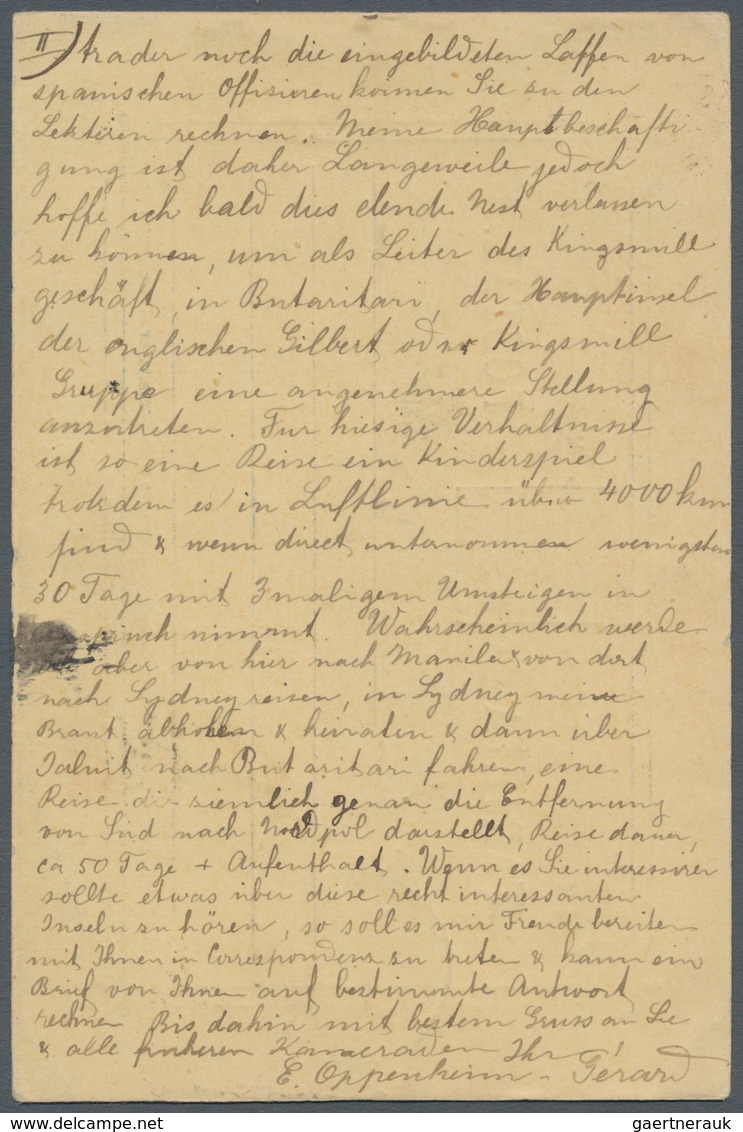 II) trader noch die eingebildeten Laffen von
spanischen Offizieren können Sie zu den
rechnen. Meine Hauptbeschäfti
gung ist daher Langeweile jedoch
hoffe ich bald dies elende Nest verlassen
zu können, um als Leiter des Kingsmill
geschäft, in Butaritari, der Hauptinsel
der englischen Gilbert oder Kingsmill
Gruppe eine angenehmere Stellung
anzutreten. Für hiesige Verhältnisse
ist so eine Reise ein Kinderspiel
trotzdem es in Luftlinie über 4000 km
sind & wenn direct unternommen wenigstens
30 Tage mit 3maligem Umsteigen in
spruch nimmt. Wahrscheinlich werde
aber von hier nach Manila & von dort
nach Sydney reisen, in Sydney meine
Braut abholen & heiraten & dann über
Jaluit nach Butaritari fahren, eine
Reise die ziemlich genau die Entfernung
von Süd nach Nordpol darstellt, Reise dauer,
ca 50 Tage + Aufenthalt. Wenn es Sie interessiren
sollte etwas über diese recht interessanten
Inseln zu hören, so soll es mir Freude bereiten
mit Ihnen in Correspondenz zu treten & kann ein
Brief von Ihnen auf bestimmte Antwort
rechnen Bis dahin mit bestem Gruss an Sie
& alle früheren Kameraden Ihr
E. Oppenheim - Gérard
gaertnerauk